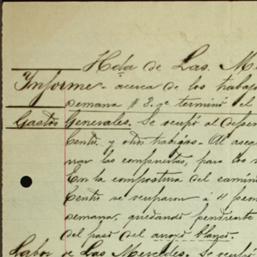 Hda de Las M
Informe - acerca de los trabaj
semana # 2. qe terminó el
Gastos Generales. Se ocupó al depen
Centro y otros trabajos. Al asea
nar las componentes, para los
En la compostura del camin
Centro se ocuparon á 11 peon
semana, quedando pendiente
del paso del arroyo Blanco.
Labor de Las Mercedes. Se ocupó